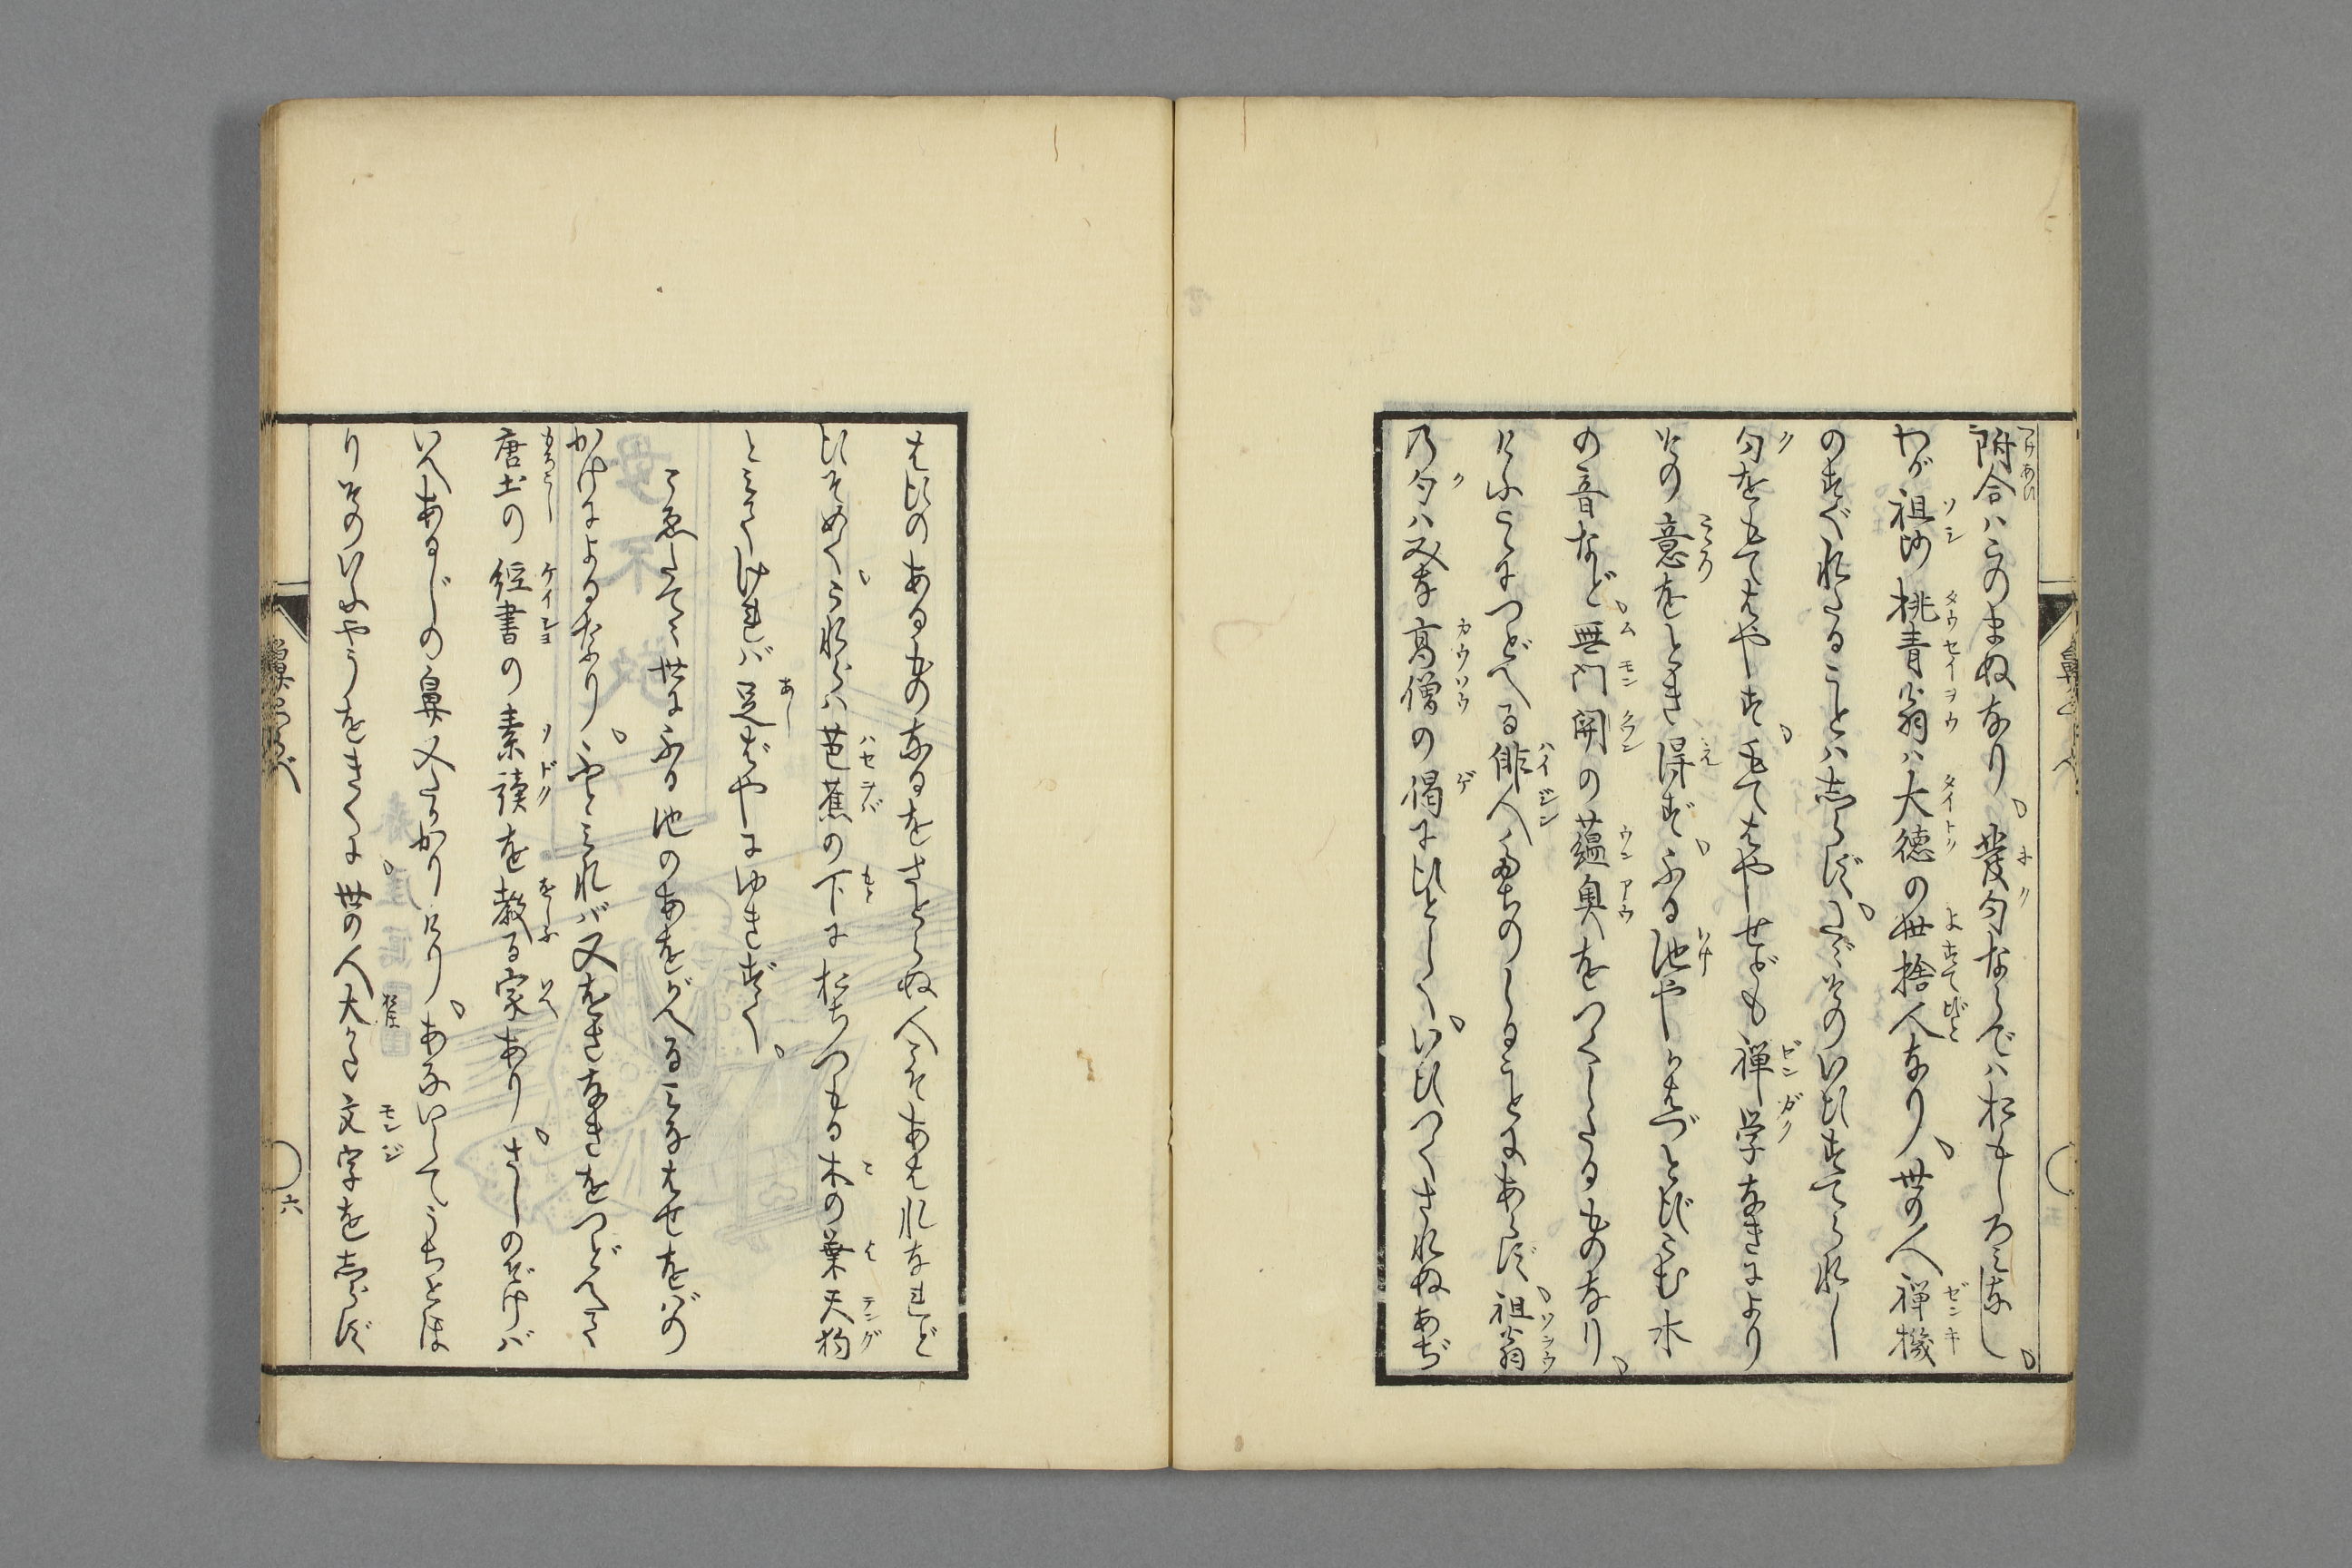 附合ハこのまぬなり。発句ならでハおもしろみなし。
わが祖師桃青翁ハ大徳の世捨人なり。世の人禅機
のすぐれたることハ志らず。たゞそのいひすてられし
句をもてはやす。もてはやせども禅学なきにより
その意をとき得ず。ふる池やかはづとびこむ水
の音など。無門関の蘊奥をつくしたるものなり。
けふこゝにつどへる俳人たちのしることにあらず。祖翁
乃句ハみな高僧の偈にひとしく。いひつくされぬあぢ
はひのあるものなるをさとらぬ人こそあはれなれど
ひそめく。これらハ芭蕉の下におちつもる木の葉天狗
とみてければ足ばやにゆきすぐ。
こゑたてゝ世にふる池のあをがへるみなはせをばの
かげによるなり。やとみれバ又をさなきをつどへて
唐土の経書の素読を教る家あり。さしのぞけバ
いへあるじの鼻又たかかりけり。あないしてうちとほ
りそのいふやうをきくに。世の人大かた文字を志らず
鼻くらべ
六